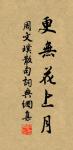 更無花上月
周文璞散句詞典網喜